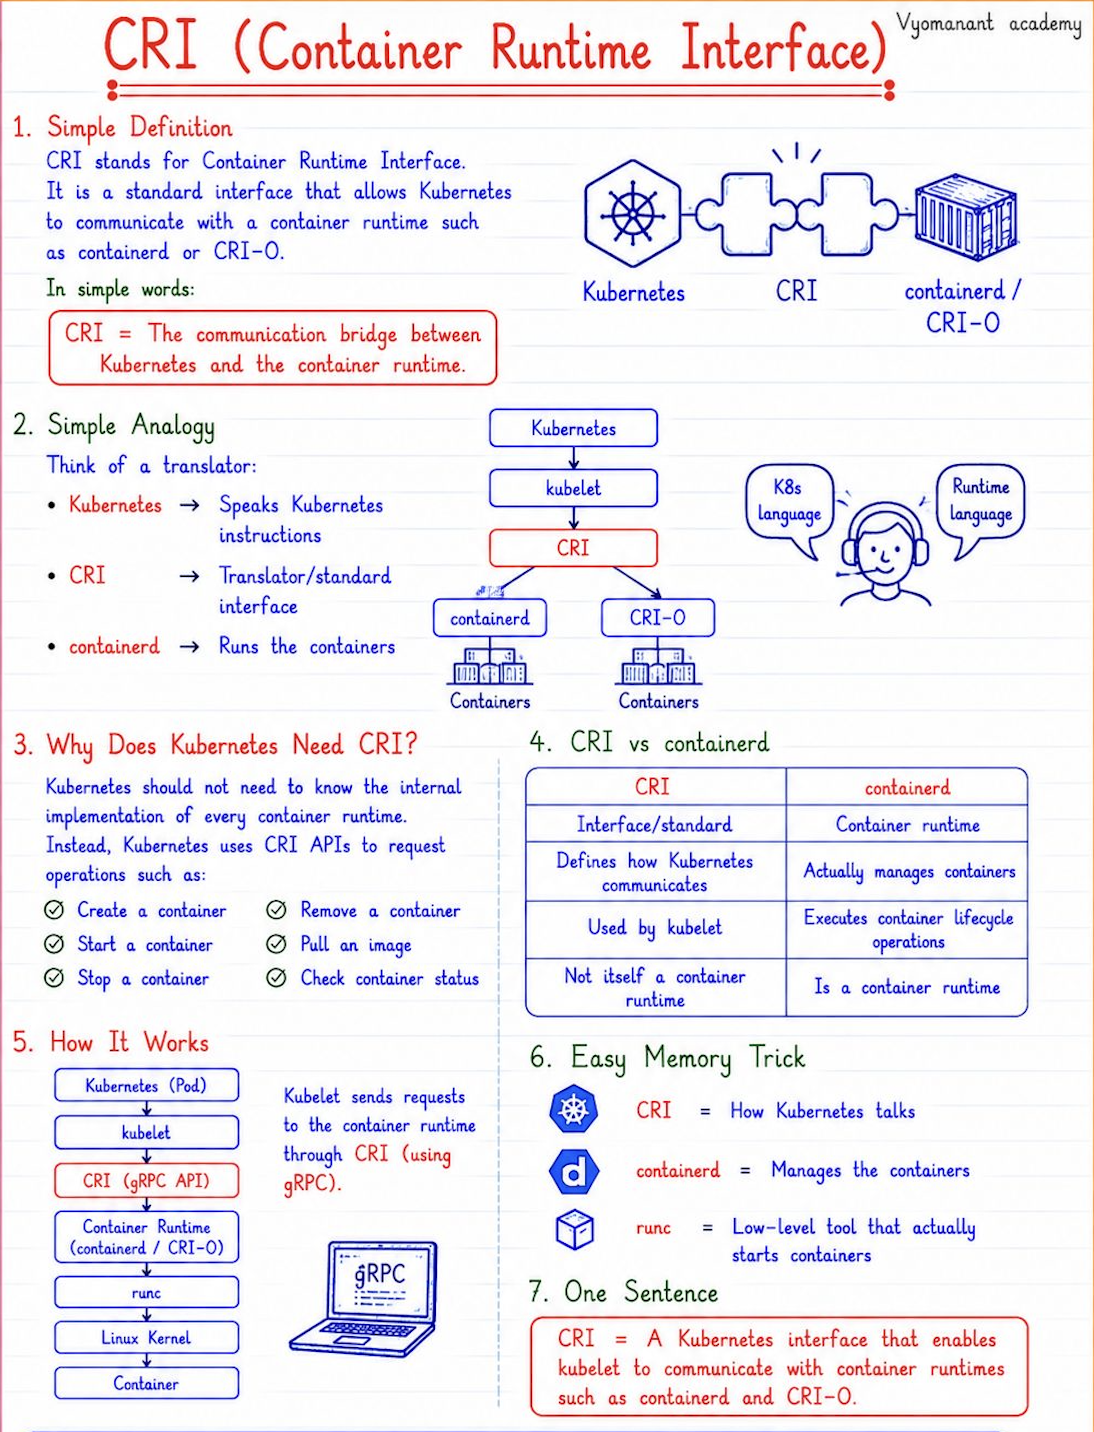 CRI (Container Runtime Interface)
Vyomanant academy
1. Simple Definition
CRI stands for Container Runtime Interface.
It is a standard interface that allows Kubernetes
to communicate with a container runtime such
as containerd or CRI-O.
In simple words:
CRI = The communication bridge between
Kubernetes and the container runtime.
Kubernetes
CRI
containerd /
CRI-O
2. Simple Analogy
Think of a translator:
• Kubernetes → Speaks Kubernetes
instructions
• CRI → Translator/standard
interface
• containerd → Runs the containers
Kubernetes
kubelet
CRI
containerd
CRI-O
Containers
Containers
K8s
language
Runtime
language
3. Why Does Kubernetes Need CRI?
Kubernetes should not need to know the internal
implementation of every container runtime.
Instead, Kubernetes uses CRI APIs to request
operations such as:
Create a container
Remove a container
Start a container
Pull an image
Stop a container
Check container status
4. CRI vs containerd
CRI
containerd
Interface/standard
Container runtime
Defines how Kubernetes
communicates
Actually manages containers
Used by kubelet
Executes container lifecycle
operations
Not itself a container
runtime
Is a container runtime
5. How It Works
Kubernetes (Pod)
kubelet
CRI (gRPC API)
Container Runtime
(containerd / CRI-O)
runc
Linux Kernel
Container
Kubelet sends requests
to the container runtime
through CRI (using
gRPC).
gRPC
6. Easy Memory Trick
CRI = How Kubernetes talks
d
containerd = Manages the containers
runc = Low-level tool that actually
starts containers
7. One Sentence
CRI = A Kubernetes interface that enables
kubelet to communicate with container runtimes
such as containerd and CRI-O.